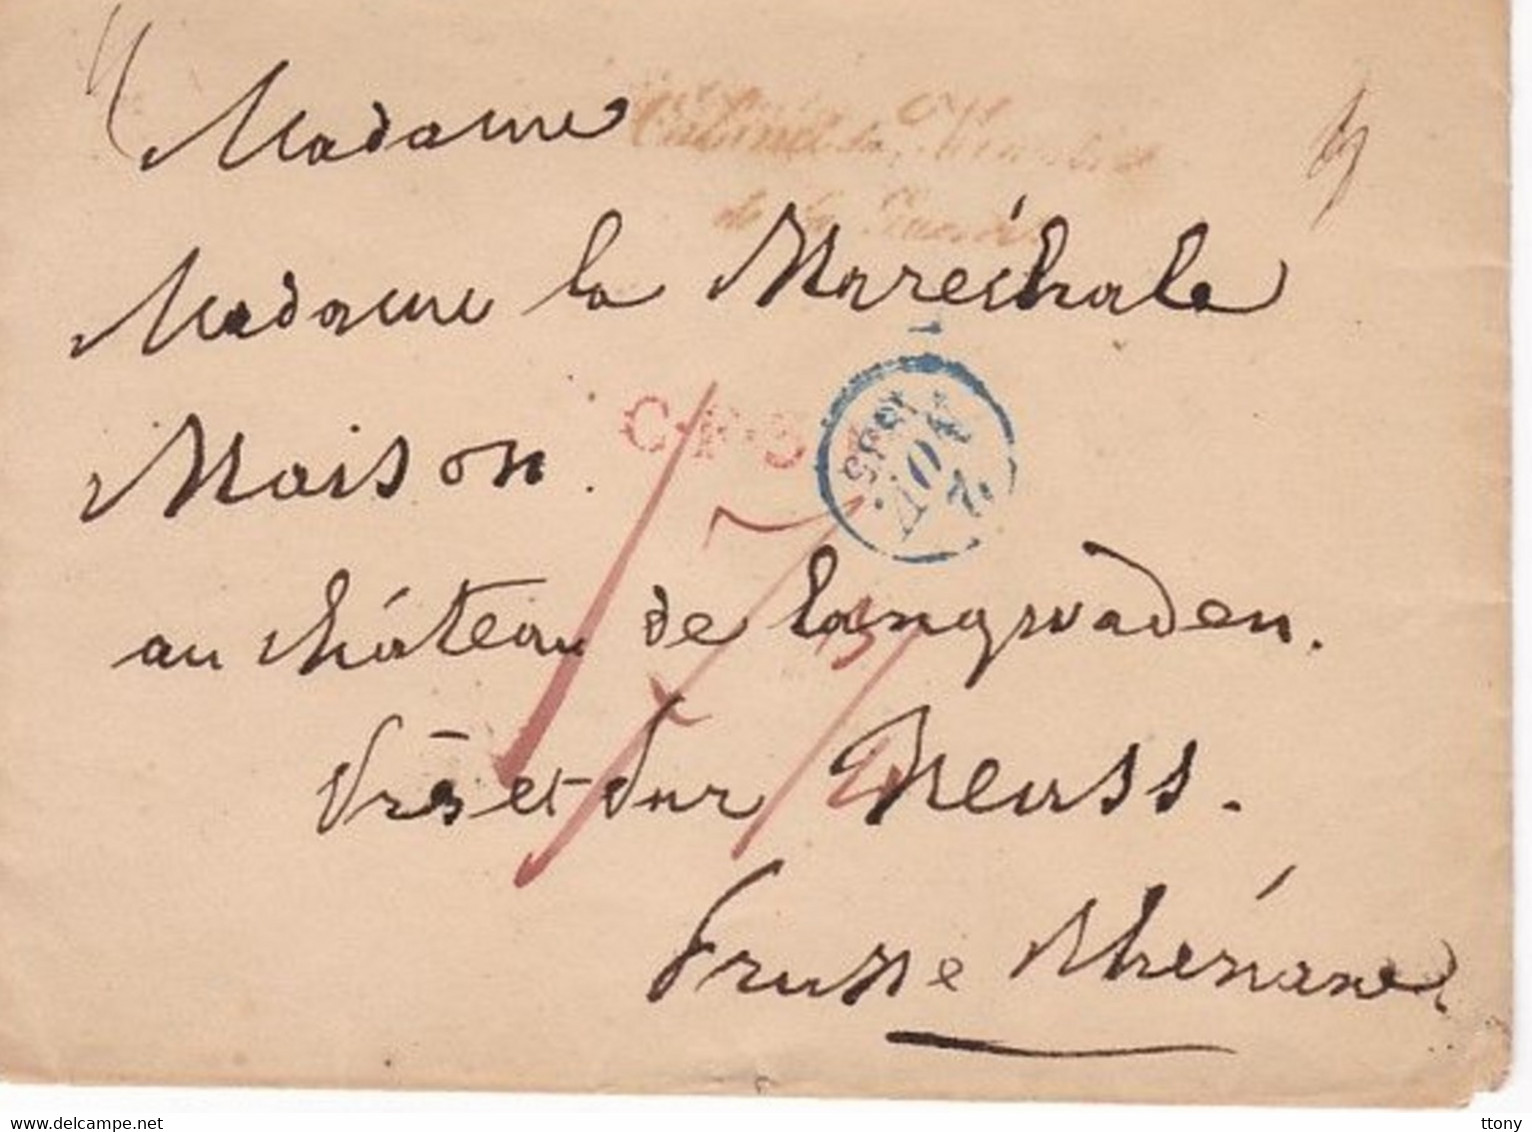 Madame
Cabinet du Ministre
de la Guerre
Madame la Maréchale
Maison.
C.F.3
7 AOUT 1835
au château de Langwaden.
près et sur Neuss.
Prusse Rhénane
delcampe.net
ttony